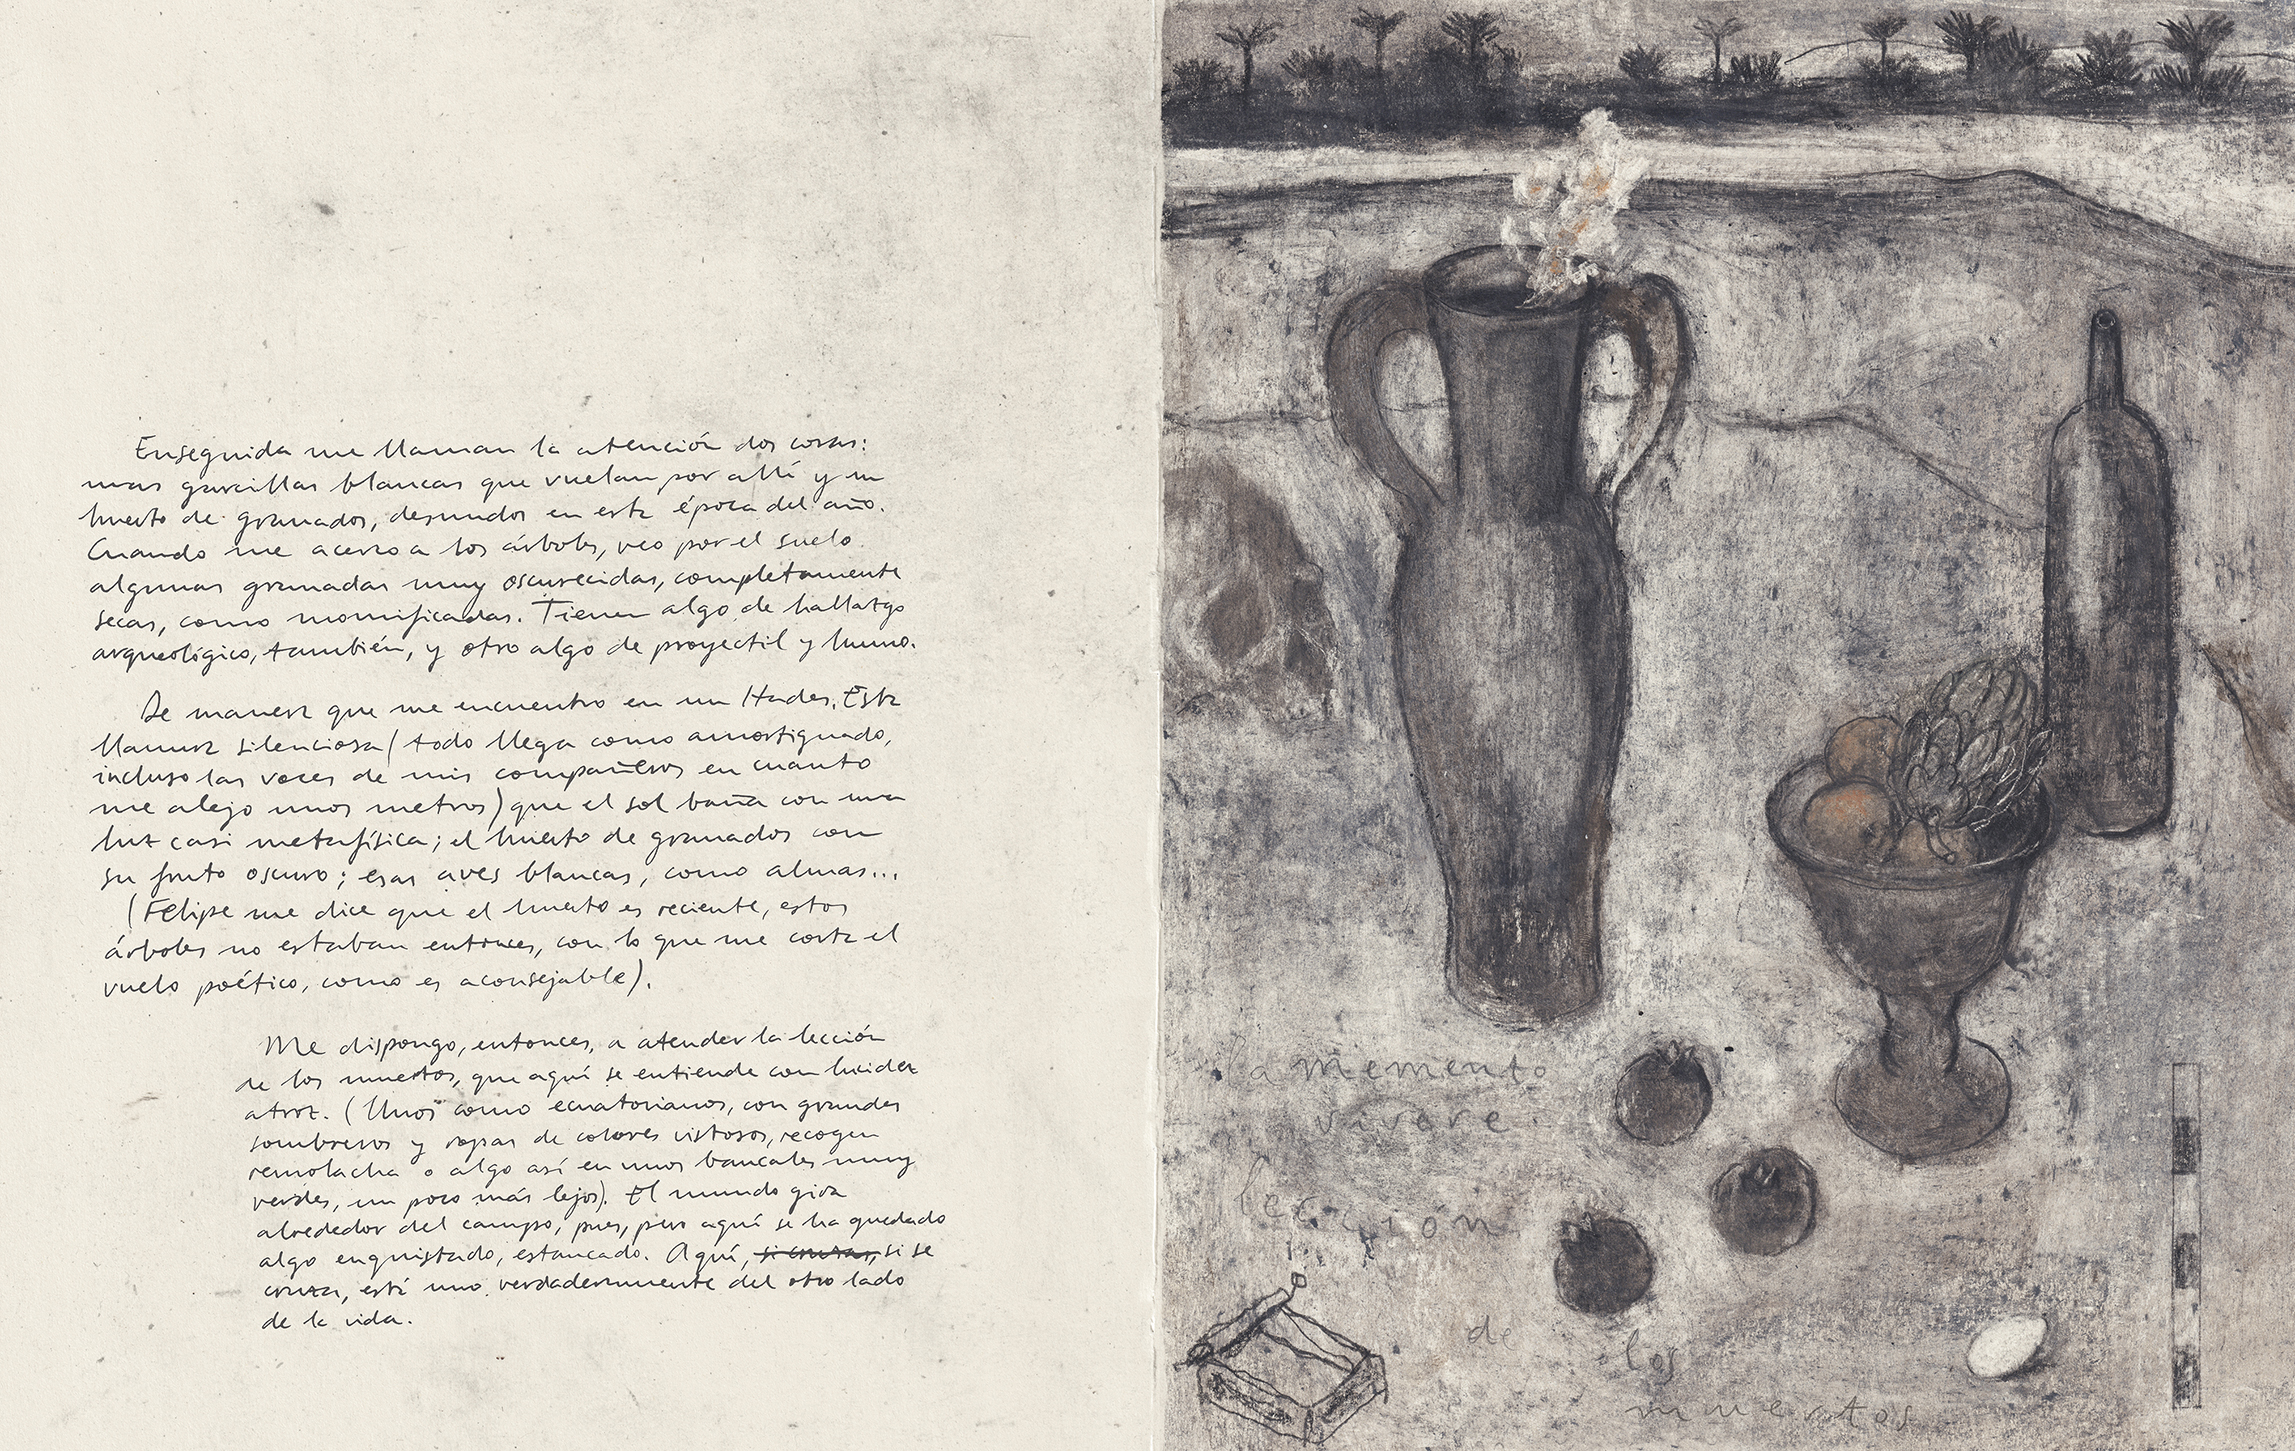 Enseguida me llaman la atención dos cosas:
unas garcillas blancas que vuelan por allí y un
huerto de granados, desnudos en esta época del año.
Cuando me acerco a los árboles, veo por el suelo
algunas granadas muy oscurecidas, completamente
secas, como momificadas. Tienen algo de hallazgo
arqueológico, también, y otro algo de proyectil y humo.
De manera que me encuentro en un Hades. Esta
llanura silenciosa (todo llega como amortiguado,
incluso las voces de mis compañeros en cuanto
me alejo unos metros) que el sol baña con una
luz casi metafísica; el huerto de granados con
su fruto oscuro; esas aves blancas, como almas...
(Felipe me dice que el huerto es reciente, estos
árboles no estaban entonces, con lo que me corta el
vuelo poético, como es aconsejable).
Me dispongo, entonces, a atender la lección
de los muertos, que aquí se entiende con lucidez
atroz. (Unos como ecuatorianos, con grandes
sombreros y ropas de colores vistosos, recogen
remolacha o algo así en unos bancales muy
verdes, un poco más lejos). El mundo gira
alrededor del campo, pues, pero aquí se ha quedado
algo enquistado, estancado. Aquí, si cruzas, si se
cruza, está uno verdaderamente del otro lado
de la vida.
la memento
vivere
lección
de los
muertos